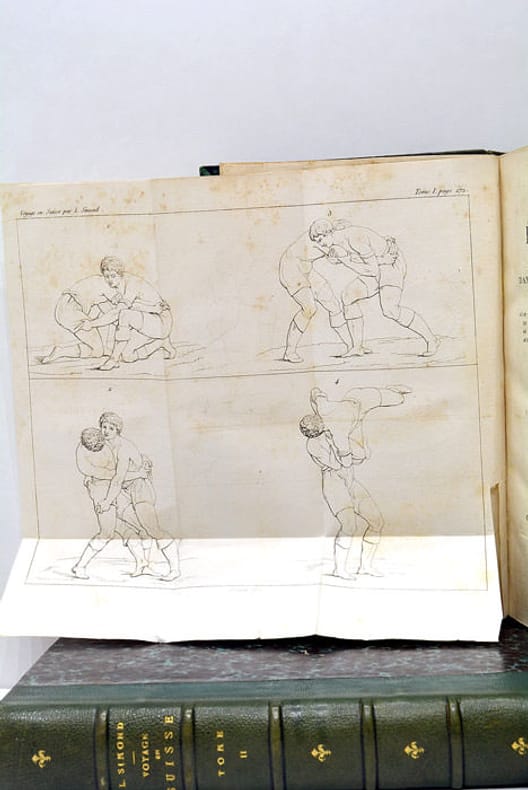 Voyage en Suisse par L. Simond
Tome I. page 272.
3
2
4
L. SIMOND
VOYAGE
EN
SUISSE
TOME
II